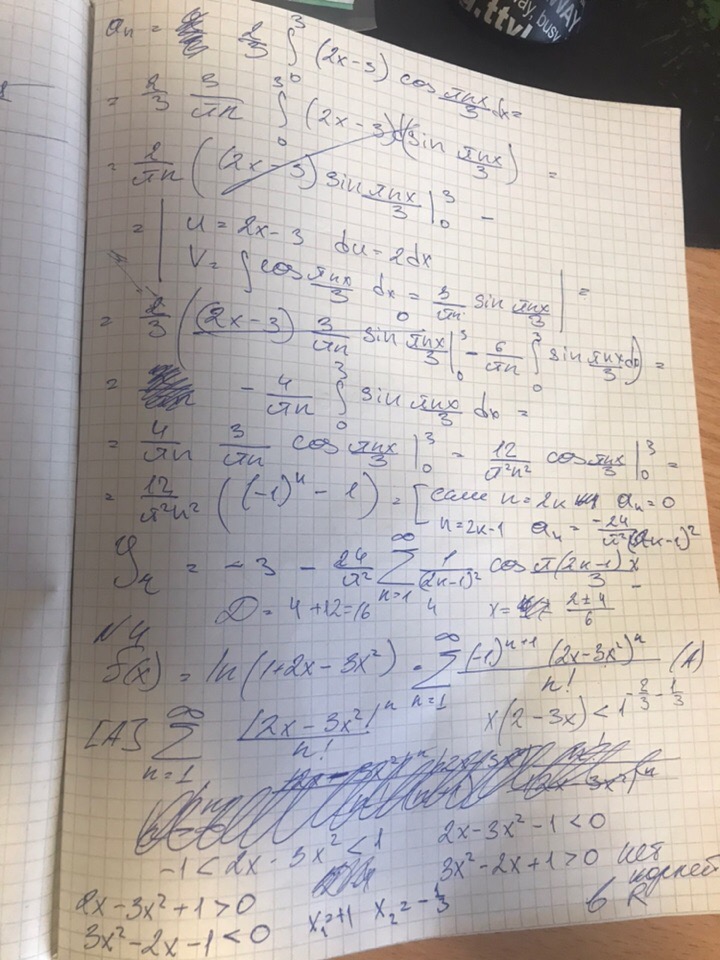 WAY
way, busy
a.ttyl
aₙ = 2/3 ∫₀³ (2x-3) cos πnx/3 dx =
= 2/3 3/πn ∫₀³ (2x-3) d(sin πnx/3) =
= 2/πn ((2x-3) sin πnx/3 |₀³ -
= | U = 2x-3 du = 2dx
V = ∫ cos πnx/3 dx = 3/πn sin πnx/3 | =
= 2/3 ((2x-3) 3/πn sin πnx/3 |₀³ - 6/πn ∫₀³ sin πnx/3 dx) =
= - 4/πn ∫₀³ sin πnx/3 dx =
= 4/πn 3/πn cos πnx/3 |₀³ = 12/π²n² cos πnx/3 |₀³ =
= 12/π²n² ((-1)ⁿ - 1) = [если n=2k aₙ = 0
n=2k-1 aₙ = -24/π²(2k-1)²
= -3 - 24/π² ∑ₙ₌₁^∞ 1/(2k-1)² cos π(2k-1)x/3
D = 4+12=16 4 x= 2±4/6
N4
f(x) = ln(1+2x-3x²) = ∑ₙ₌₁^∞ (-1)ⁿ⁺¹ (2x-3x²)ⁿ/n! (A)
[A] ∑ₙ₌₁^∞ |2x-3x²|ⁿ/n! x(2-3x)<1 -2/3 -1/3
-1 < 2x-3x² < 1 2x-3x²-1<0
2x-3x²+1>0 3x²-2x+1>0 нет корней в R
3x²-2x-1<0 x₁=+1 x₂=-1/3